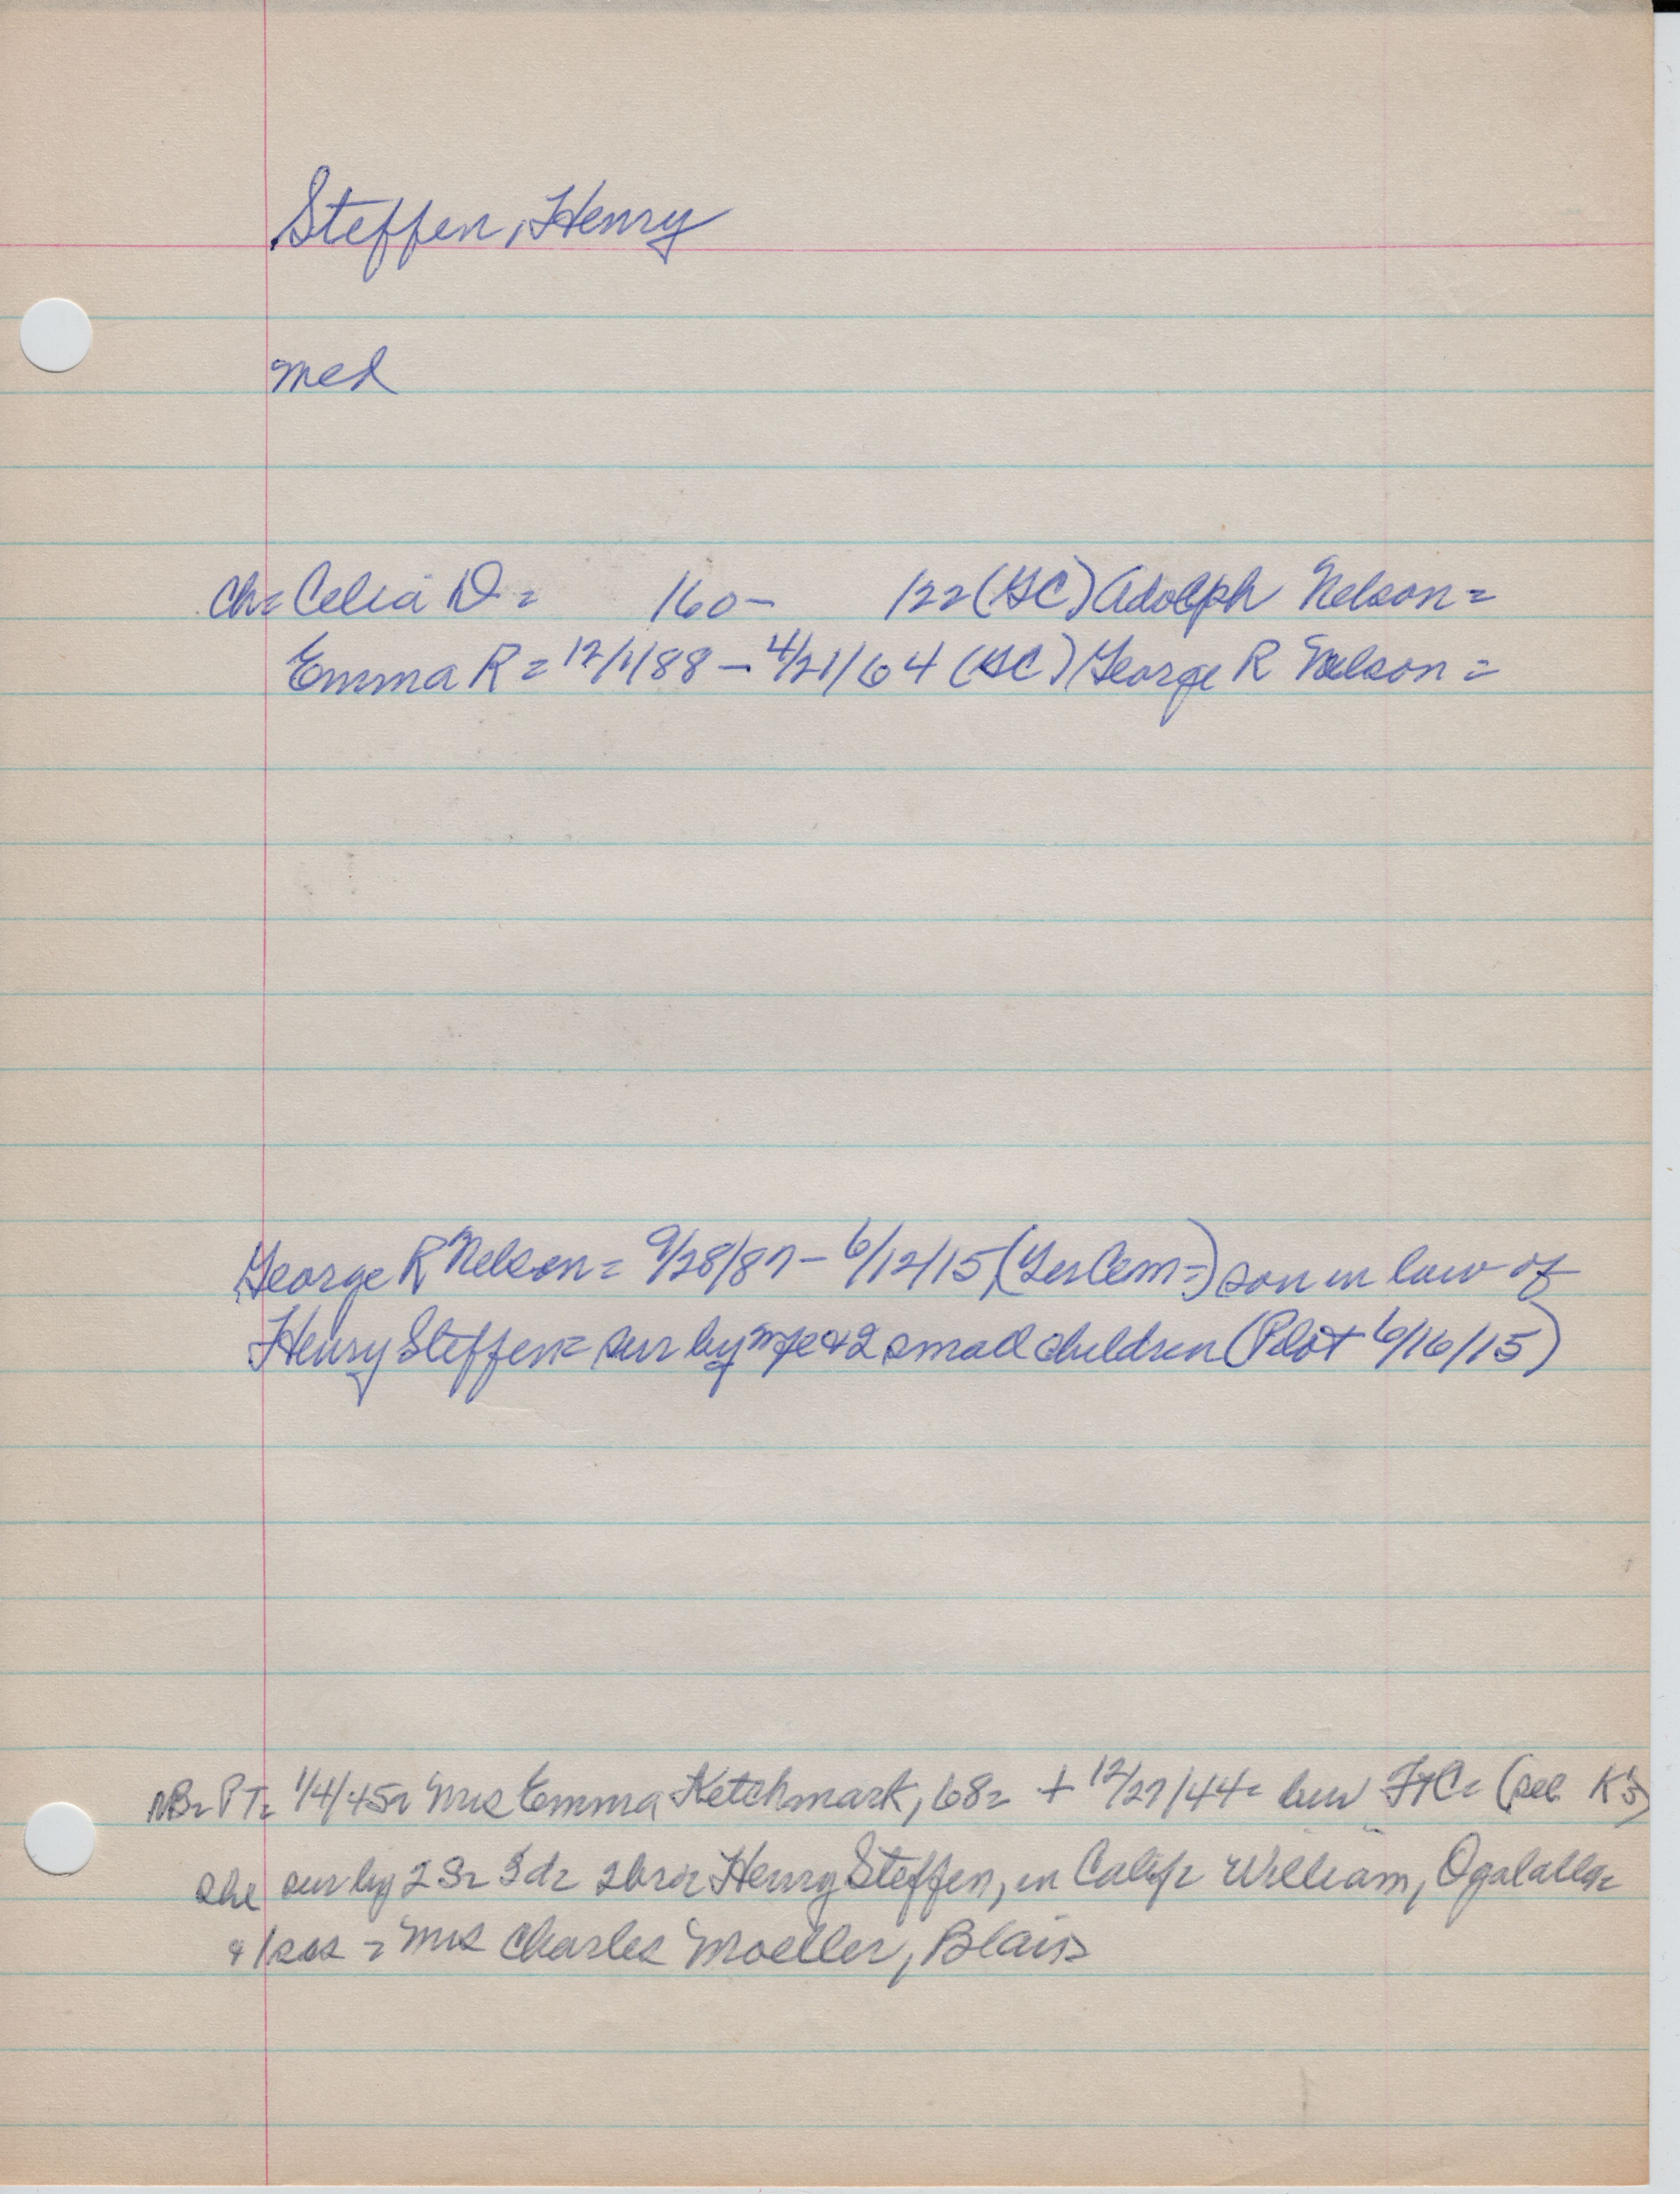 Steffen, Henry
med
Ch= Celia D= /60- /22 (GC) Adolph Nelson=
Emma R= 12/1/88 - 4/21/64 (GC) George R Nelson=
George R Nelson= 9/28/87 - 6/12/15 (Ger Cem=) son in law of
Henry Steffen= sur by wife & 2 small children (Pilot 6/16/15)
NB= PT= 1/4/45= Mrs Emma Ketchmark, 68= + 12/27/44= bur FtC= (see K's)
she sur by 2 S= 3d= 2bro= Henry Steffen, in Calif= William, Ogalalla=
& 1 sis = Mrs Charles Moeller, Blair=